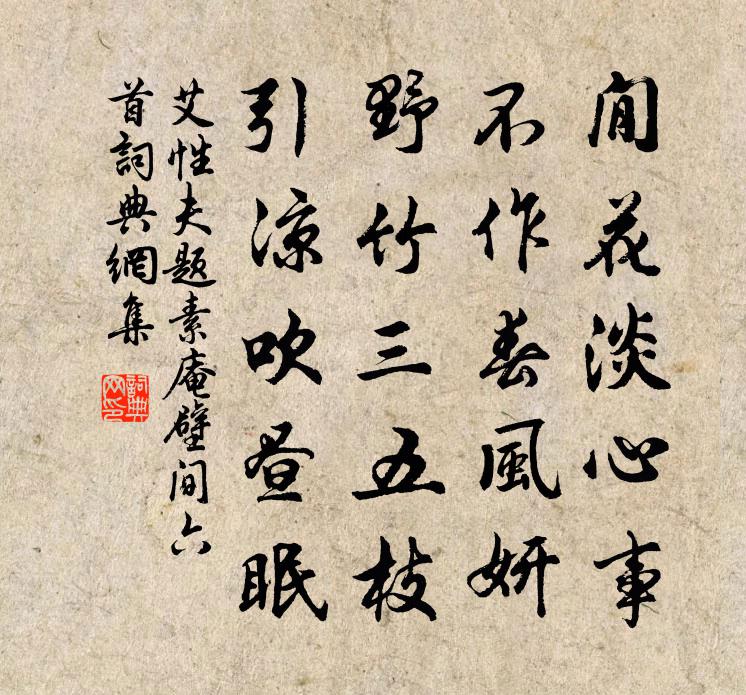 閒花淡心事
不作春風妍
野竹三五枝
引涼吹晝眠
艾性夫題素庵壁間六
首詞典網集
詞典
网印